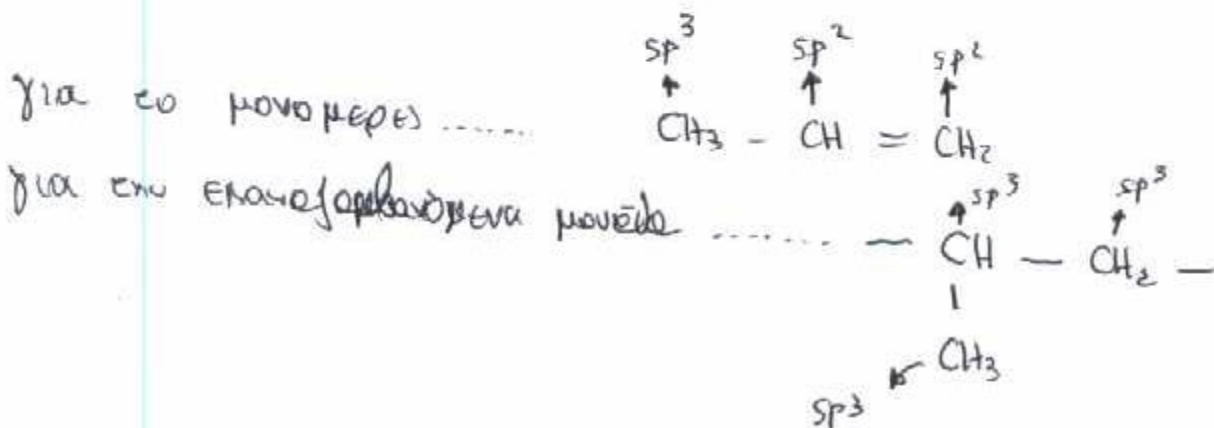 sp³ sp² sp²
για το μονομερες ...... CH₃ - CH = CH₂
για την επαναλαμβανόμενα μονάδα ...... — CH — CH₂ —
sp³ sp³
|
CH₃
sp³